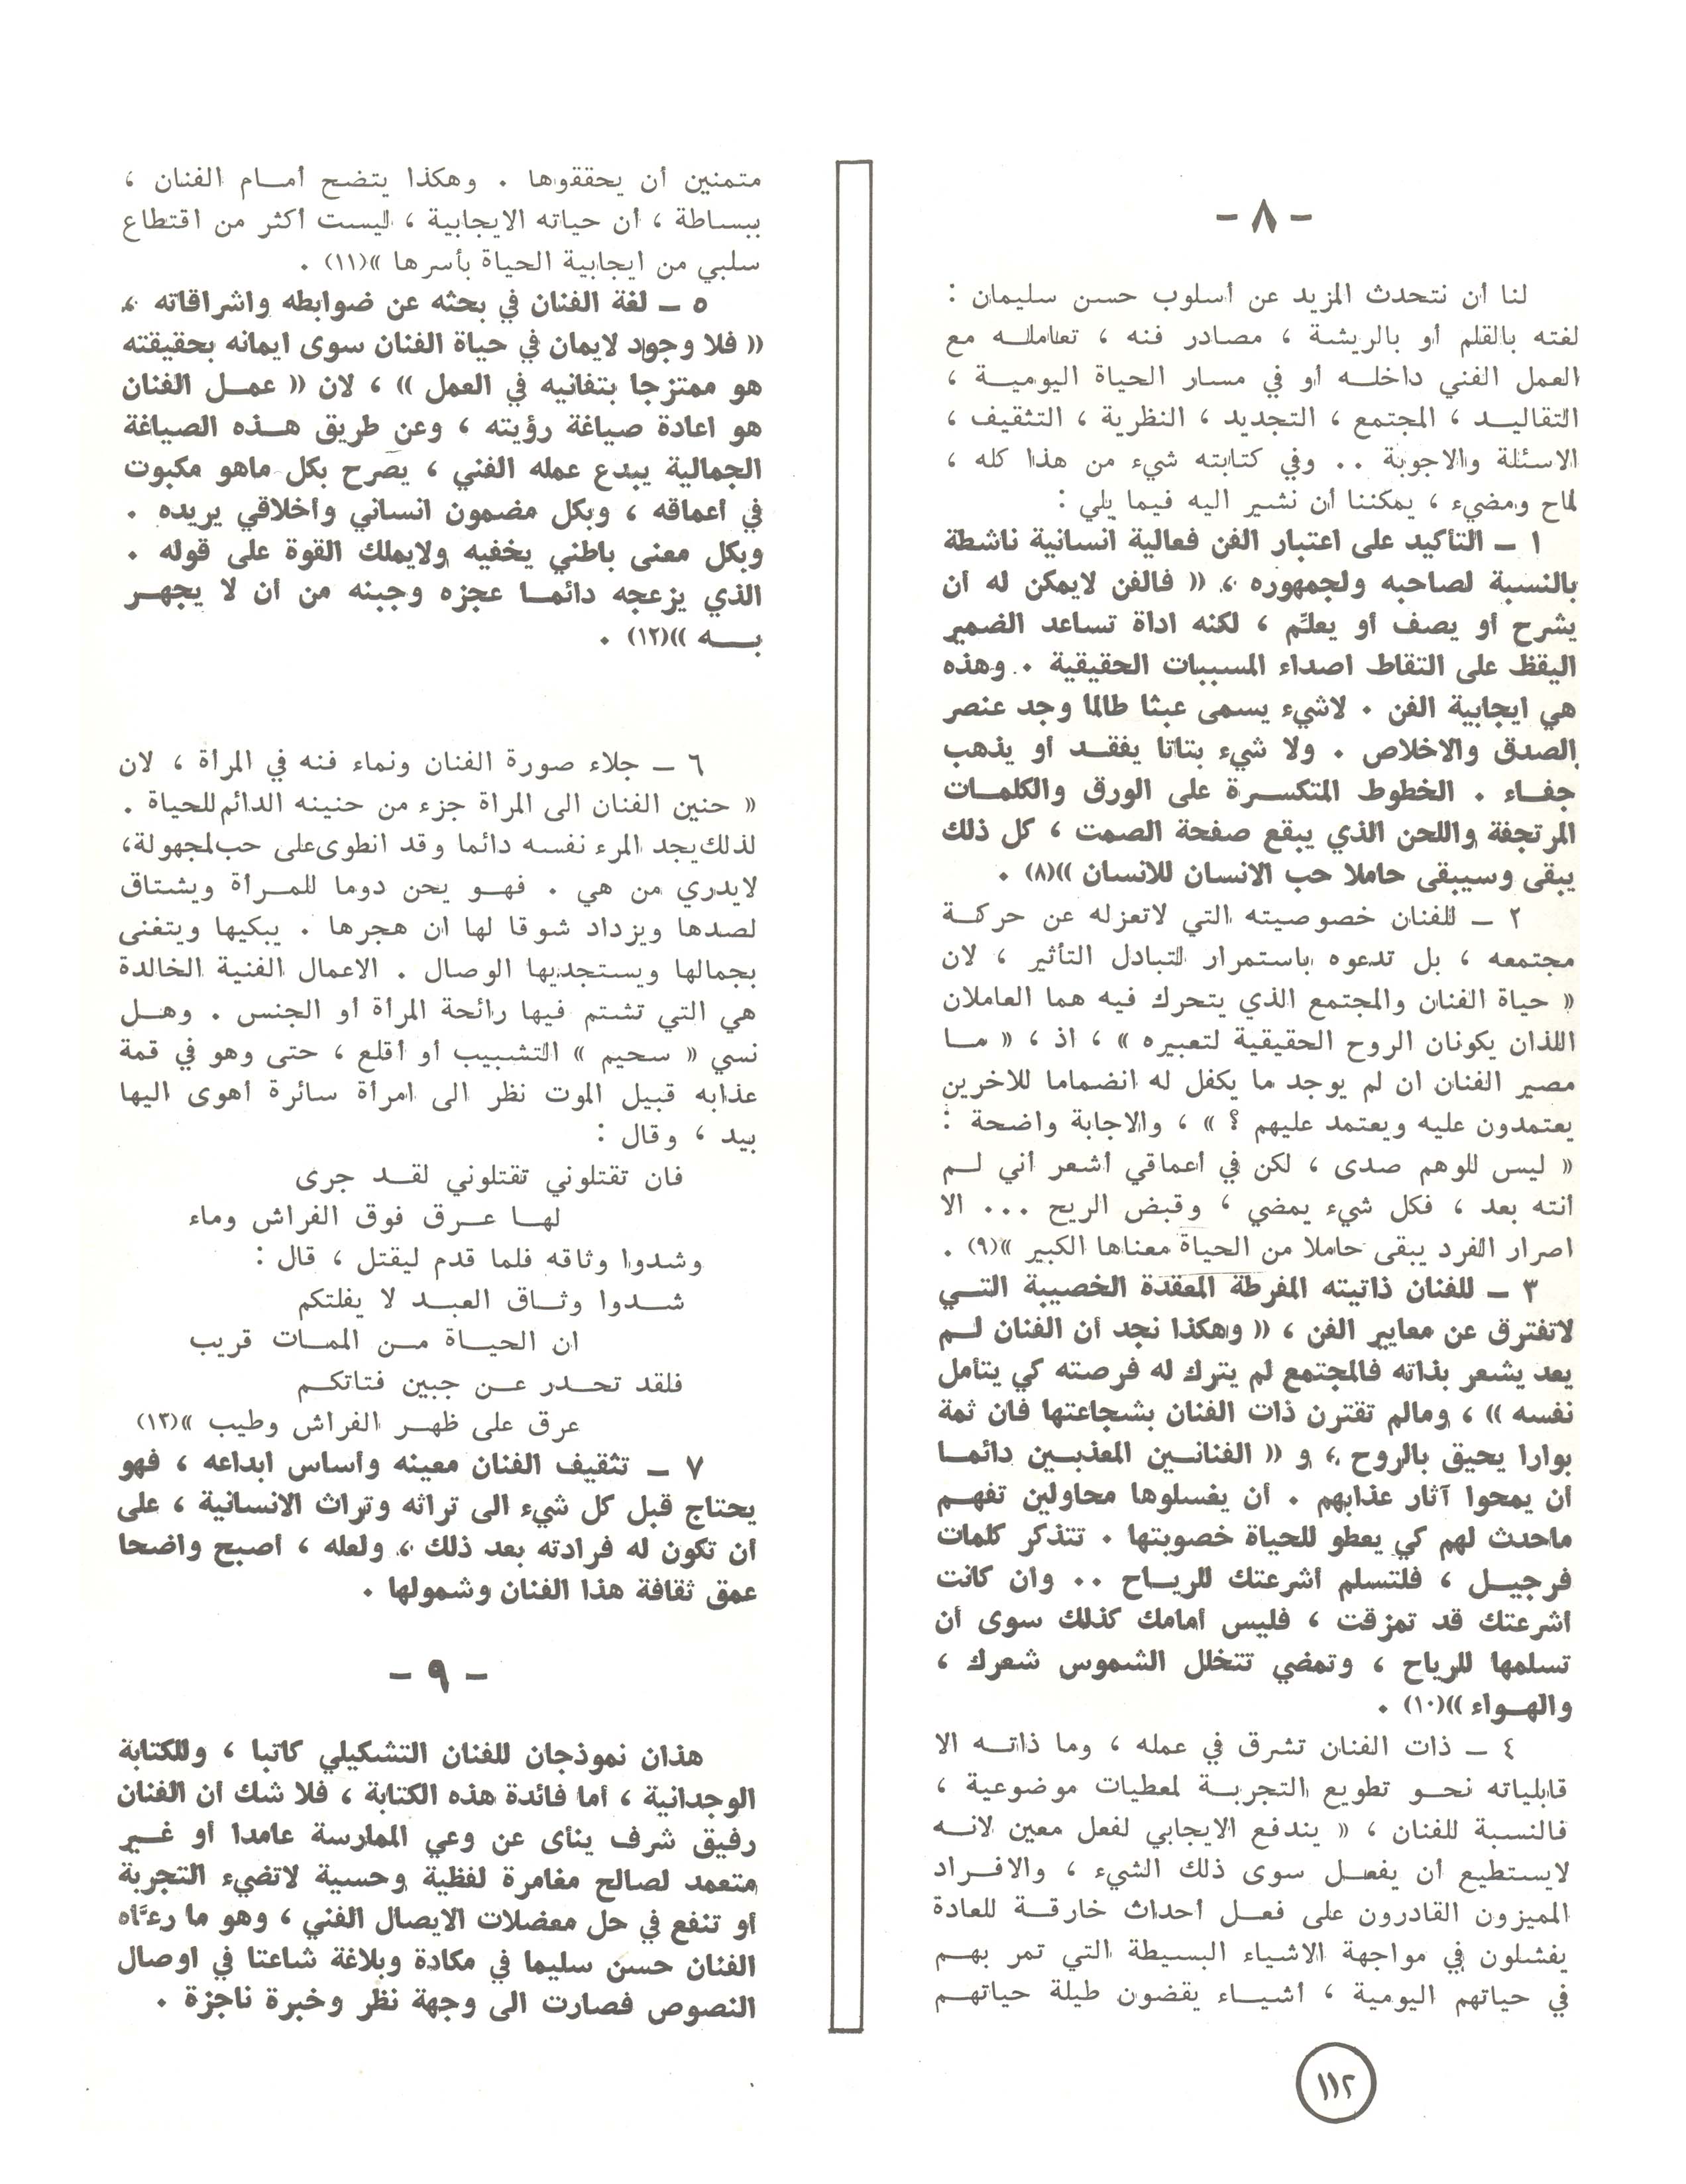 - ٨ -
لنا أن نتحدث المزيد عن أسلوب حسن سليمان :
لغته بالقلم أو بالريشة ، مصادر فنه ، تعامله مع
العمل الفني داخله أو في مسار الحياة اليومية ،
التقاليد ، المجتمع ، التجديد ، النظرية ، التثقيف ،
الاسئلة والاجوبة .. وفي كتابته شيء من هذا كله ،
لماح ومضيء ، يمكننا أن نشير اليه فيما يلي :
١ - التأكيد على اعتبار الفن فعالية انسانية ناشطة
بالنسبة لصاحبه ولجمهوره ، « فالفن لايمكن له أن
يشرح أو يصف أو يعلّم ، لكنه اداة تساعد الضمير
اليقظ على التقاط اصداء المسببات الحقيقية . وهذه
هي ايجابية الفن . لاشيء يسمى عبثا طالما وجد عنصر
الصدق والاخلاص . ولا شيء بتاتا يفقد أو يذهب
جفاء . الخطوط المتكسرة على الورق والكلمات
المرتجفة واللحن الذي يبقع صفحة الصمت ، كل ذلك
يبقى وسيبقى حاملا حب الانسان للانسان »(٨) .
٢ - للفنان خصوصيته التي لاتعزله عن حركة
مجتمعه ، بل تدعوه باستمرار لتبادل التأثير ، لان
« حياة الفنان والمجتمع الذي يتحرك فيه هما العاملان
اللذان يكونان الروح الحقيقية لتعبيره » ، اذ ، « ما
مصير الفنان ان لم يوجد ما يكفل له انضماما للاخرين
يعتمدون عليه ويعتمد عليهم ؟ » ، والاجابة واضحة :
« ليس للوهم صدى ، لكن في أعماقي أشعر أني لم
أنته بعد ، فكل شيء يمضي ، وقبض الريح ... الا
اصرار الفرد يبقى حاملا من الحياة معناها الكبير »(٩) .
٣ - للفنان ذاتيته المفرطة المعقدة الخصيبة التي
لاتفترق عن معايير الفن ، « وهكذا نجد أن الفنان لم
يعد يشعر بذاته فالمجتمع لم يترك له فرصته كي يتأمل
نفسه » ، ومالم تقترن ذات الفنان بشجاعتها فان ثمة
بوارا يحيق بالروح ، و « الفنانين المعذبين دائما
أن يمحوا آثار عذابهم . أن يغسلوها محاولين تفهم
ماحدث لهم كي يعطو للحياة خصوبتها . تتذكر كلمات
فرجيل ، فلتسلم أشرعتك للرياح .. وان كانت
أشرعتك قد تمزقت ، فليس أمامك كذلك سوى أن
تسلمها للرياح ، وتمضي تتخلل الشموس شعرك ،
والهواء »(١٠) .
٤ - ذات الفنان تشرق في عمله ، وما ذاته الا
قابلياته نحو تطويع التجربة لمعطيات موضوعية ،
فالنسبة للفنان ، « يندفع الايجابي لفعل معين لانه
لايستطيع أن يفعل سوى ذلك الشيء ، والافراد
المميزون القادرون على فعل أحداث خارقة للعادة
يفشلون في مواجهة الاشياء البسيطة التي تمر بهم
في حياتهم اليومية ، أشياء يقضون طيلة حياتهم
متمنين أن يحققوها . وهكذا يتضح أمام الفنان ،
ببساطة ، أن حياته الايجابية ، ليست أكثر من اقتطاع
سلبي من ايجابية الحياة بأسرها »(١١) .
٥ - لغة الفنان في بحثه عن ضوابطه واشراقاته ،
« فلا وجود لايمان في حياة الفنان سوى ايمانه بحقيقته
هو ممتزجا بتفانيه في العمل » ، لان « عمل الفنان
هو اعادة صياغة رؤيته ، وعن طريق هذه الصياغة
الجمالية يبدع عمله الفني ، يصرح بكل ماهو مكبوت
في أعماقه ، وبكل مضمون انساني وأخلاقي يريده .
وبكل معنى باطني يخفيه ولايملك القوة على قوله .
الذي يزعجه دائما عجزه وجبنه من أن لا يجهر
به »(١٢) .
٦ - جلاء صورة الفنان ونماء فنه في المرأة ، لان
« حنين الفنان الى المرأة جزء من حنينه الدائم للحياة .
لذلك يجد المرء نفسه دائما وقد انطوى على حب لمجهولة،
لايدري من هي . فهو يحن دوما للمرأة ويشتاق
لصدها ويزداد شوقا لها ان هجرها . يبكيها ويتغنى
بجمالها ويستجديها الوصال . الاعمال الفنية الخالدة
هي التي تشتم فيها رائحة المرأة أو الجنس . وهل
نسي « سحيم » التشبيب أو أقلع ، حتى وهو في قمة
عذابه قبيل الموت نظر الى امرأة سائرة أهوى اليها
بيد ، وقال :
فان تقتلوني تقتلوني لقد جرى
لها عرق فوق الفراش وماء
وشدوا وثاقه فلما قدم ليقتل ، قال :
شدوا وثاق العبد لا يفلتكم
ان الحياة من الممات قريب
فلقد تحدر عن جبين فتاتكم
عرق على ظهر الفراش وطيب »(١٣)
٧ - تثقيف الفنان معينه وأساس ابداعه ، فهو
يحتاج قبل كل شيء الى تراثه وتراث الانسانية ، على
أن تكون له فرادته بعد ذلك ، ولعله ، أصبح واضحا
عمق ثقافة هذا الفنان وشمولها .
- ٩ -
هذان نموذجان للفنان التشكيلي كاتبا ، وللكتابة
الوجدانية ، أما فائدة هذه الكتابة ، فلا شك أن الفنان
رفيق شرف ينأى عن وعي الممارسة عامدا أو غير
متعمد لصالح مغامرة لفظية وحسية لاتضيء التجربة
أو تنفع في حل معضلات الايصال الفني ، وهو ما رءَاه
الفنان حسن سليما في مكادة وبلاغة شاعتا في اوصال
النصوص فصارت الى وجهة نظر وخبرة ناجزة .
١١٢